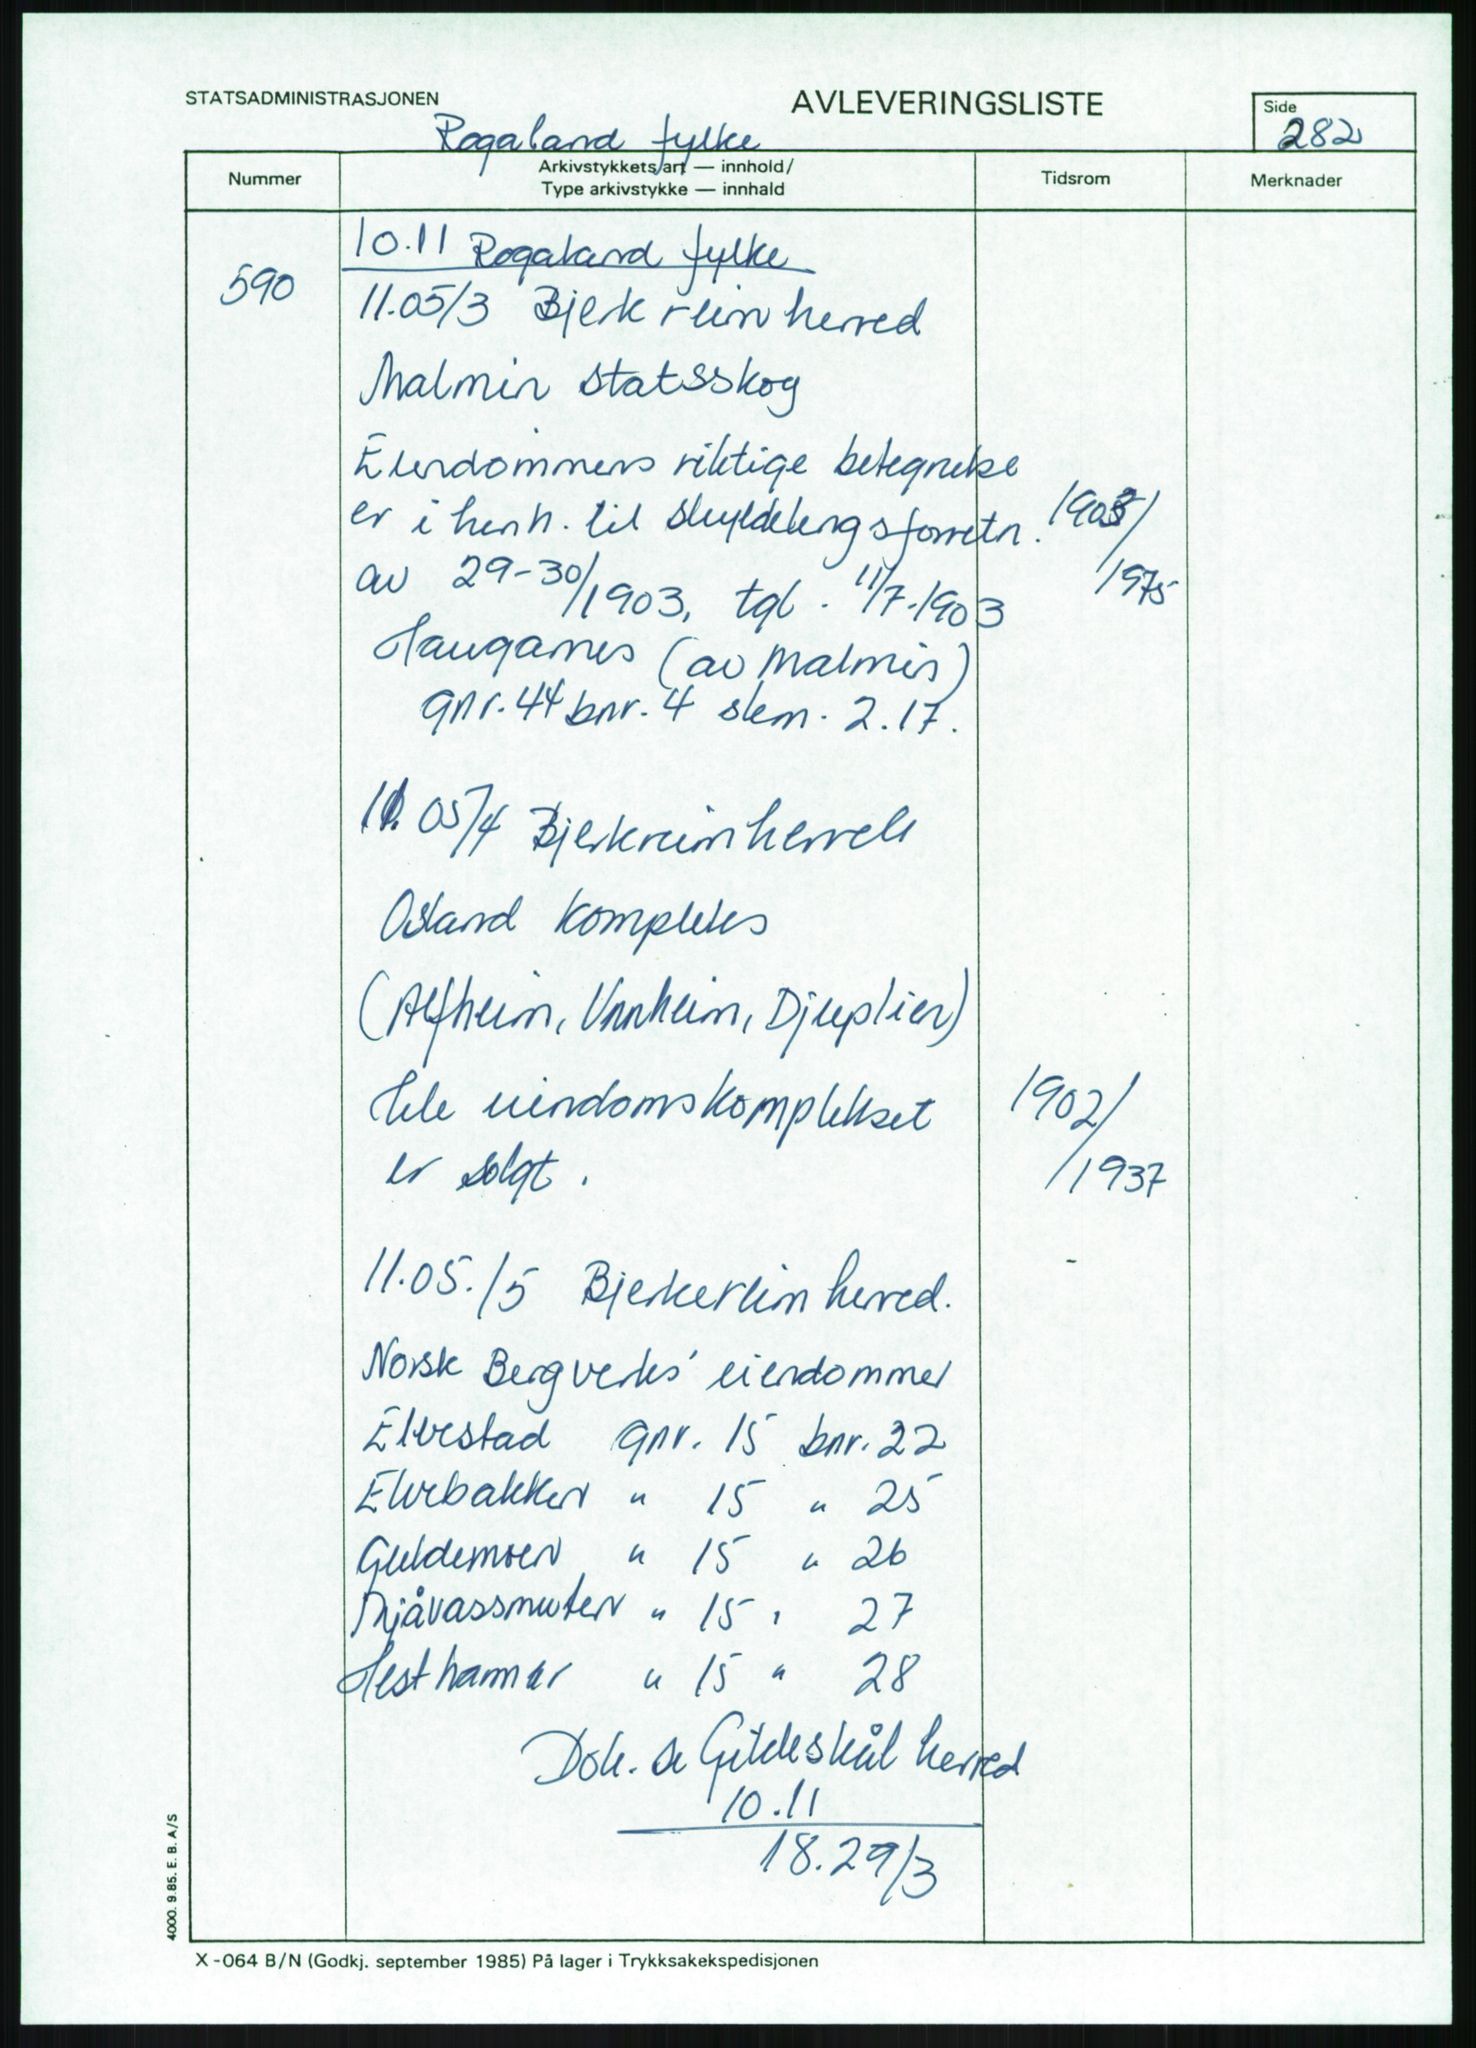 STATSADMINISTRASJONEN
AVLEVERINGSLISTE
Side
282
Rogaland fylke
Nummer
Arkivstykkets art — innhold/
Type arkivstykke — innhald
Tidsrom
Merknader
10.11 Rogaland fylke
590
11.05/3 Bjerkreim herred
Malmin statsskog
Eiendommens riktige betegnelse
er i henh. til skyldelingsforretn. 1903/
av 29-30/1903, tgl. 11/7-1903 /1975
Haugarnes (av Malmin)
gnr. 44 bnr. 4 skm. 2.17.
11.05/4 Bjerkreim herred
Osland kompleks
(Alfheim, Unnheim, Djuplien)
Hele eiendomskomplekset 1902/
er solgt. /1937
11.05./5 Bjerkereim herred.
Norsk Bergverks' eiendommer
Elvestad gnr. 15 bnr. 22
Elvebakken " 15 " 25
Guldemoen " 15 " 26
" 15 " 27
Hesthammer " 15 " 28
Dok. se Gildeskål herred
10.11
18.29/3
4000. 9.85. E. B. A/S
X-064 B/N (Godkj. september 1985) På lager i Trykksakekspedisjonen